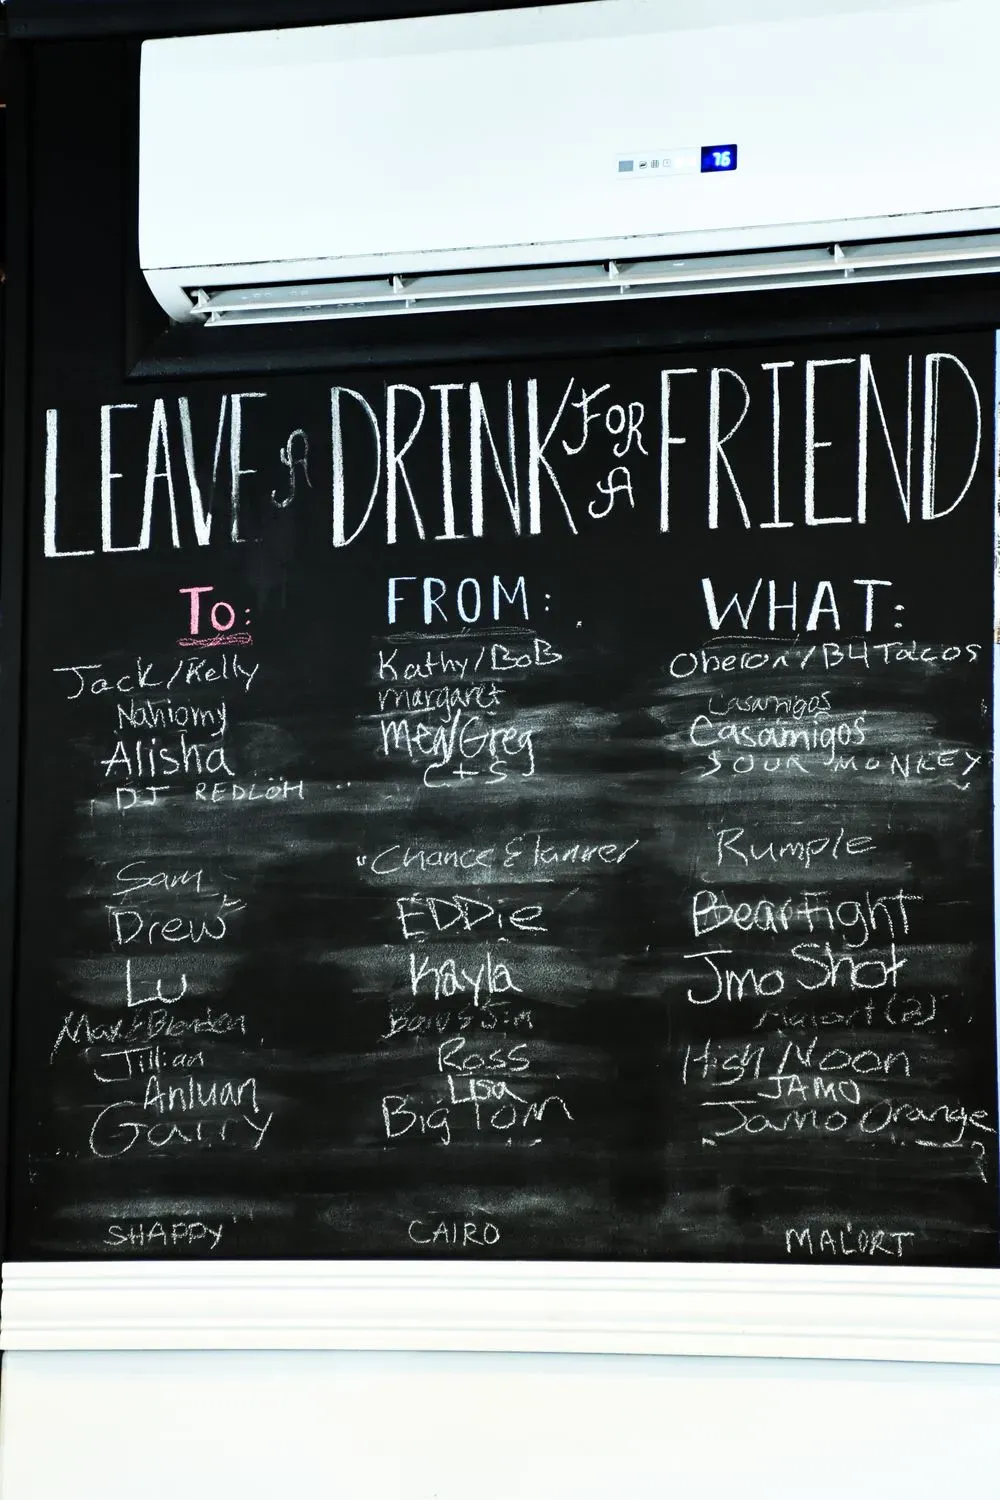 76
LEAVE A DRINK FOR A FRIEND
TO: FROM: WHAT:
Jack/Kelly Kathy/BoB Oberon/B4 Tacos
Nahiomy margaret Casamigos
Alisha Meg/Greg Casamigos
DJ REDLOH C+S SOUR MONKEY
Sam Chance & Tanner Rumple
Drew EDDie Bearfight
Lu Kayla Jmo Shot
Jim Malort (2)
Jillian Ross High Noon
Anluan Lisa JAMO
Garry Big Tom Jamo Orange
SHAPPY CAIRO MALORT